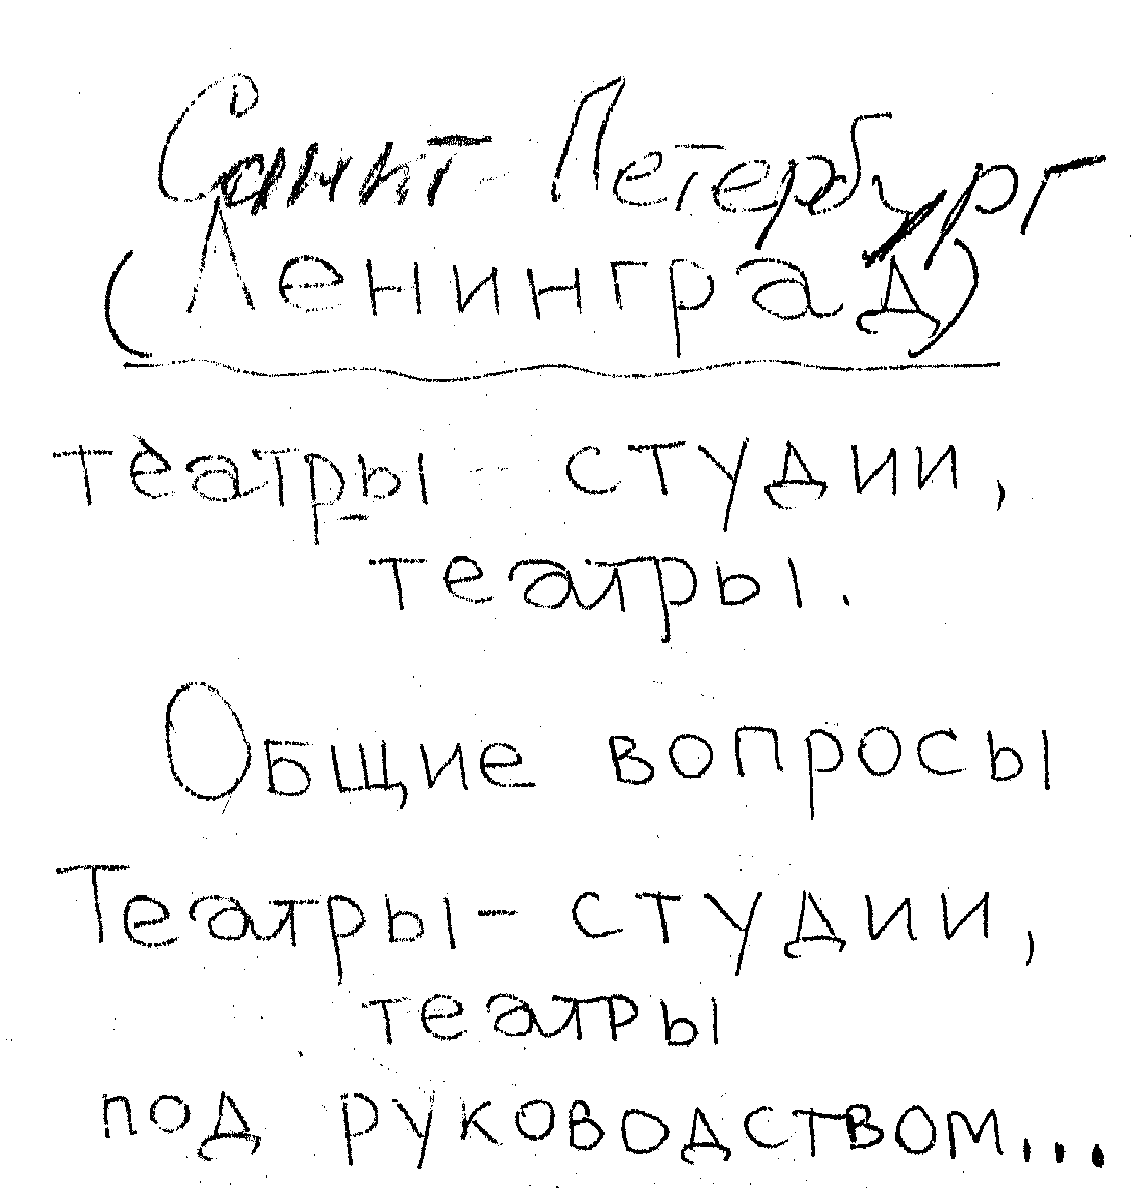 Санкт-Петербург
(Ленинград)
театры-студии,
театры.
Общие вопросы
Театры-студии,
театры
под руководством...